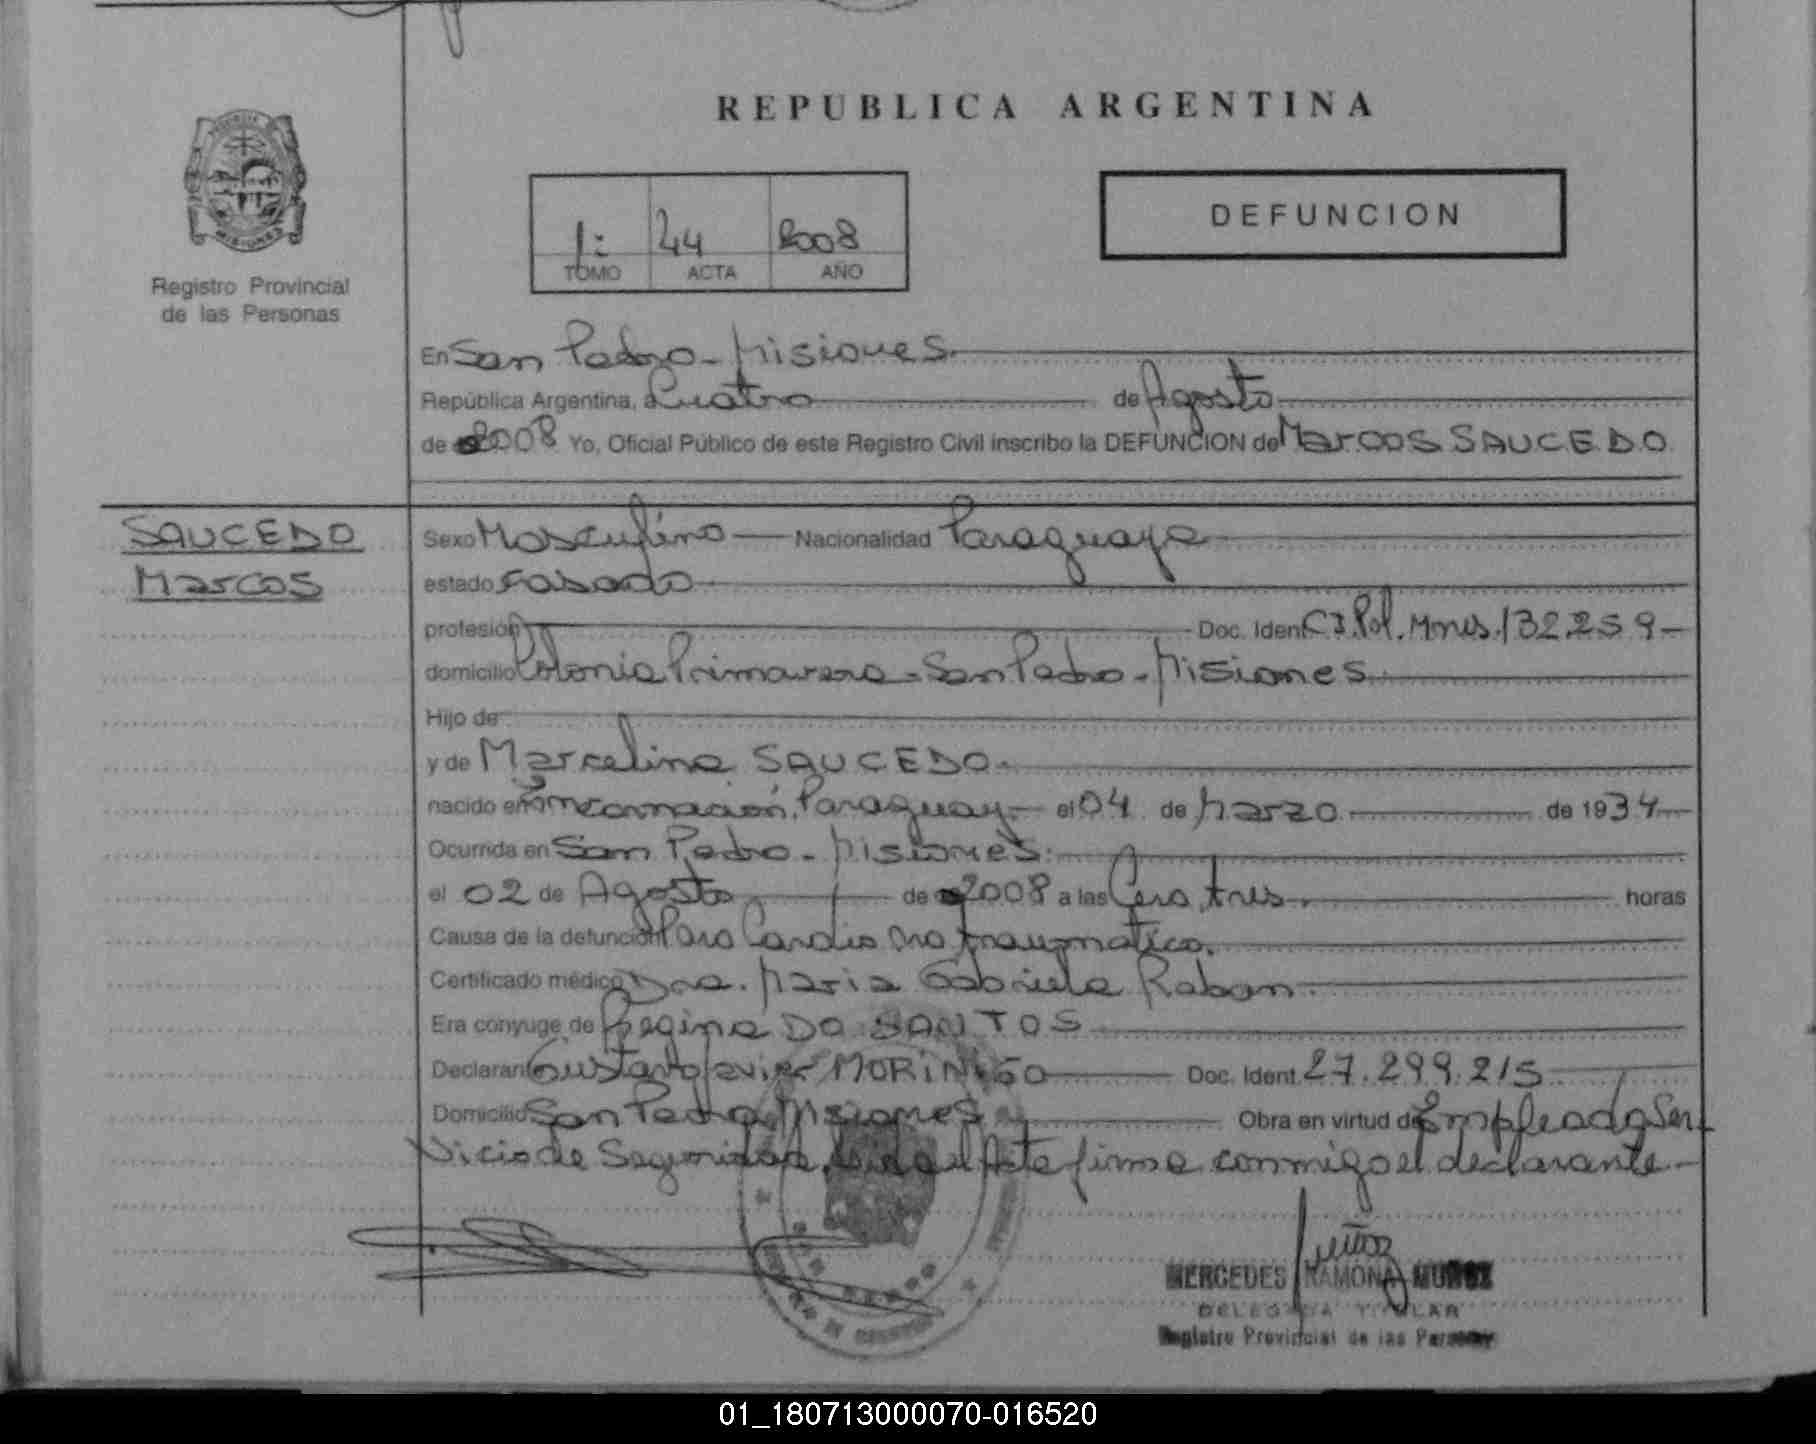 REPUBLICA ARGENTINA
1: 44 2008
TOMO ACTA AÑO
DEFUNCION
Registro Provincial
de las Personas
En San Pedro - Misiones.
República Argentina, a Cuatro de Agosto
de 2008 Yo, Oficial Público de este Registro Civil inscribo la DEFUNCION de Marcos SAUCEDO
SAUCEDO
Marcos
Sexo Masculino Nacionalidad Paraguaya
estado Casado
profesión Doc. Ident. C.I. Pol. Mnes. 132.259
domicilio Colonia Primavera - San Pedro - Misiones.
Hijo de
y de Marcelina SAUCEDO.
nacido en Encarnación, Paraguay el 04 de Marzo de 1934
Ocurrida en San Pedro - Misiones.
el 02 de Agosto de 2008 a las Cero, tres. horas
Causa de la defunción Paro Cardio no traumatico.
Certificado médico Dra. Maria Gabriela Raban.
Era conyuge de Regina DO SANTOS
Declaran Gustavo Javier MORINIGO Doc. Ident. 27.299.215
Domicilio San Pedro Misiones Obra en virtud de Empleado Ser
vicio de Seguridad, Leida el Acta firma conmigo el declarante
Muñoz
MERCEDES RAMONA MUÑOZ
DELEGADA TITULAR
Registro Provincial de las Personas
01_180713000070-016520